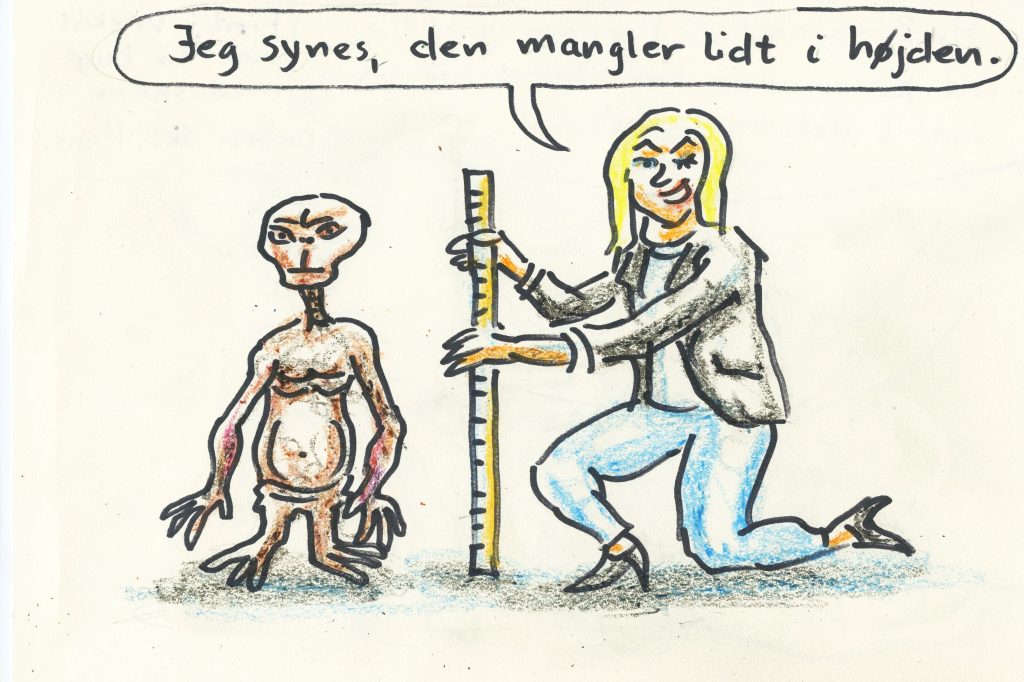 Jeg synes, den mangler lidt i højden.